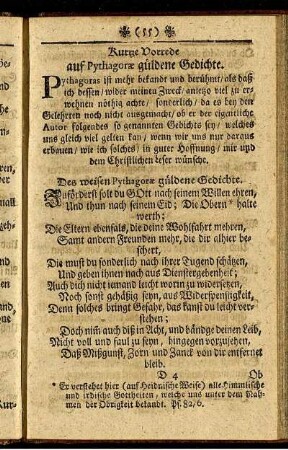 (55)
Kurtze Vorrede
auf Pythagoræ güldene Gedichte.
Pythagoras ist mehr bekandt und berühmt/ als daß
ich dessen/ wider meinen Zweck/ anietzo viel zu er-
wehnen nöthig achte/ sonderlich/ da es bey den
Gelehrten noch nicht ausgemacht/ ob er der eigentliche
Autor folgendes so genannten Gedichts sey/ welches
uns gleich viel gelten kan/ wenn wir uns nur daraus
erbauen/ wie ich solches/ in guter Hoffnung/ mir und
dem Christlichen Leser wünsche.
Des weisen Pythagoræ güldene Gedichte.
Zuförderst solt du GOtt nach seinem Willen ehren,
Und thun nach seinem Eid; Die Obern * halte
werth;
Die Eltern ebenfals, die deine Wohlfahrt mehren,
Samt andern Freunden mehr, die dir alhier be-
schert,
Die must du sonderlich nach ihrer Tugend schätzen,
Und geben ihnen nach aus Dienstergebenheit;
Auch dich nicht iemand leicht worin zu widersetzen,
Noch sonst gehäßig seyn, aus Widerspenstigkeit,
Denn solches bringt Gefahr, das kanst du leicht ver-
stehen;
Doch nim auch diß in Acht, und bändge deinen Leib,
Nicht voll und faul zu seyn, hingegen vorzusehen,
Daß Mißgunst, Zorn und Zanck von dir entfernet
bleib.
D 4 Ob
* Er verstehet hier (auf Heidnische Weise) alle himmlische
und irdische Gottheiten, welche uns unter dem Nah-
men der Obrigkeit bekandt. Ps. 82/6.